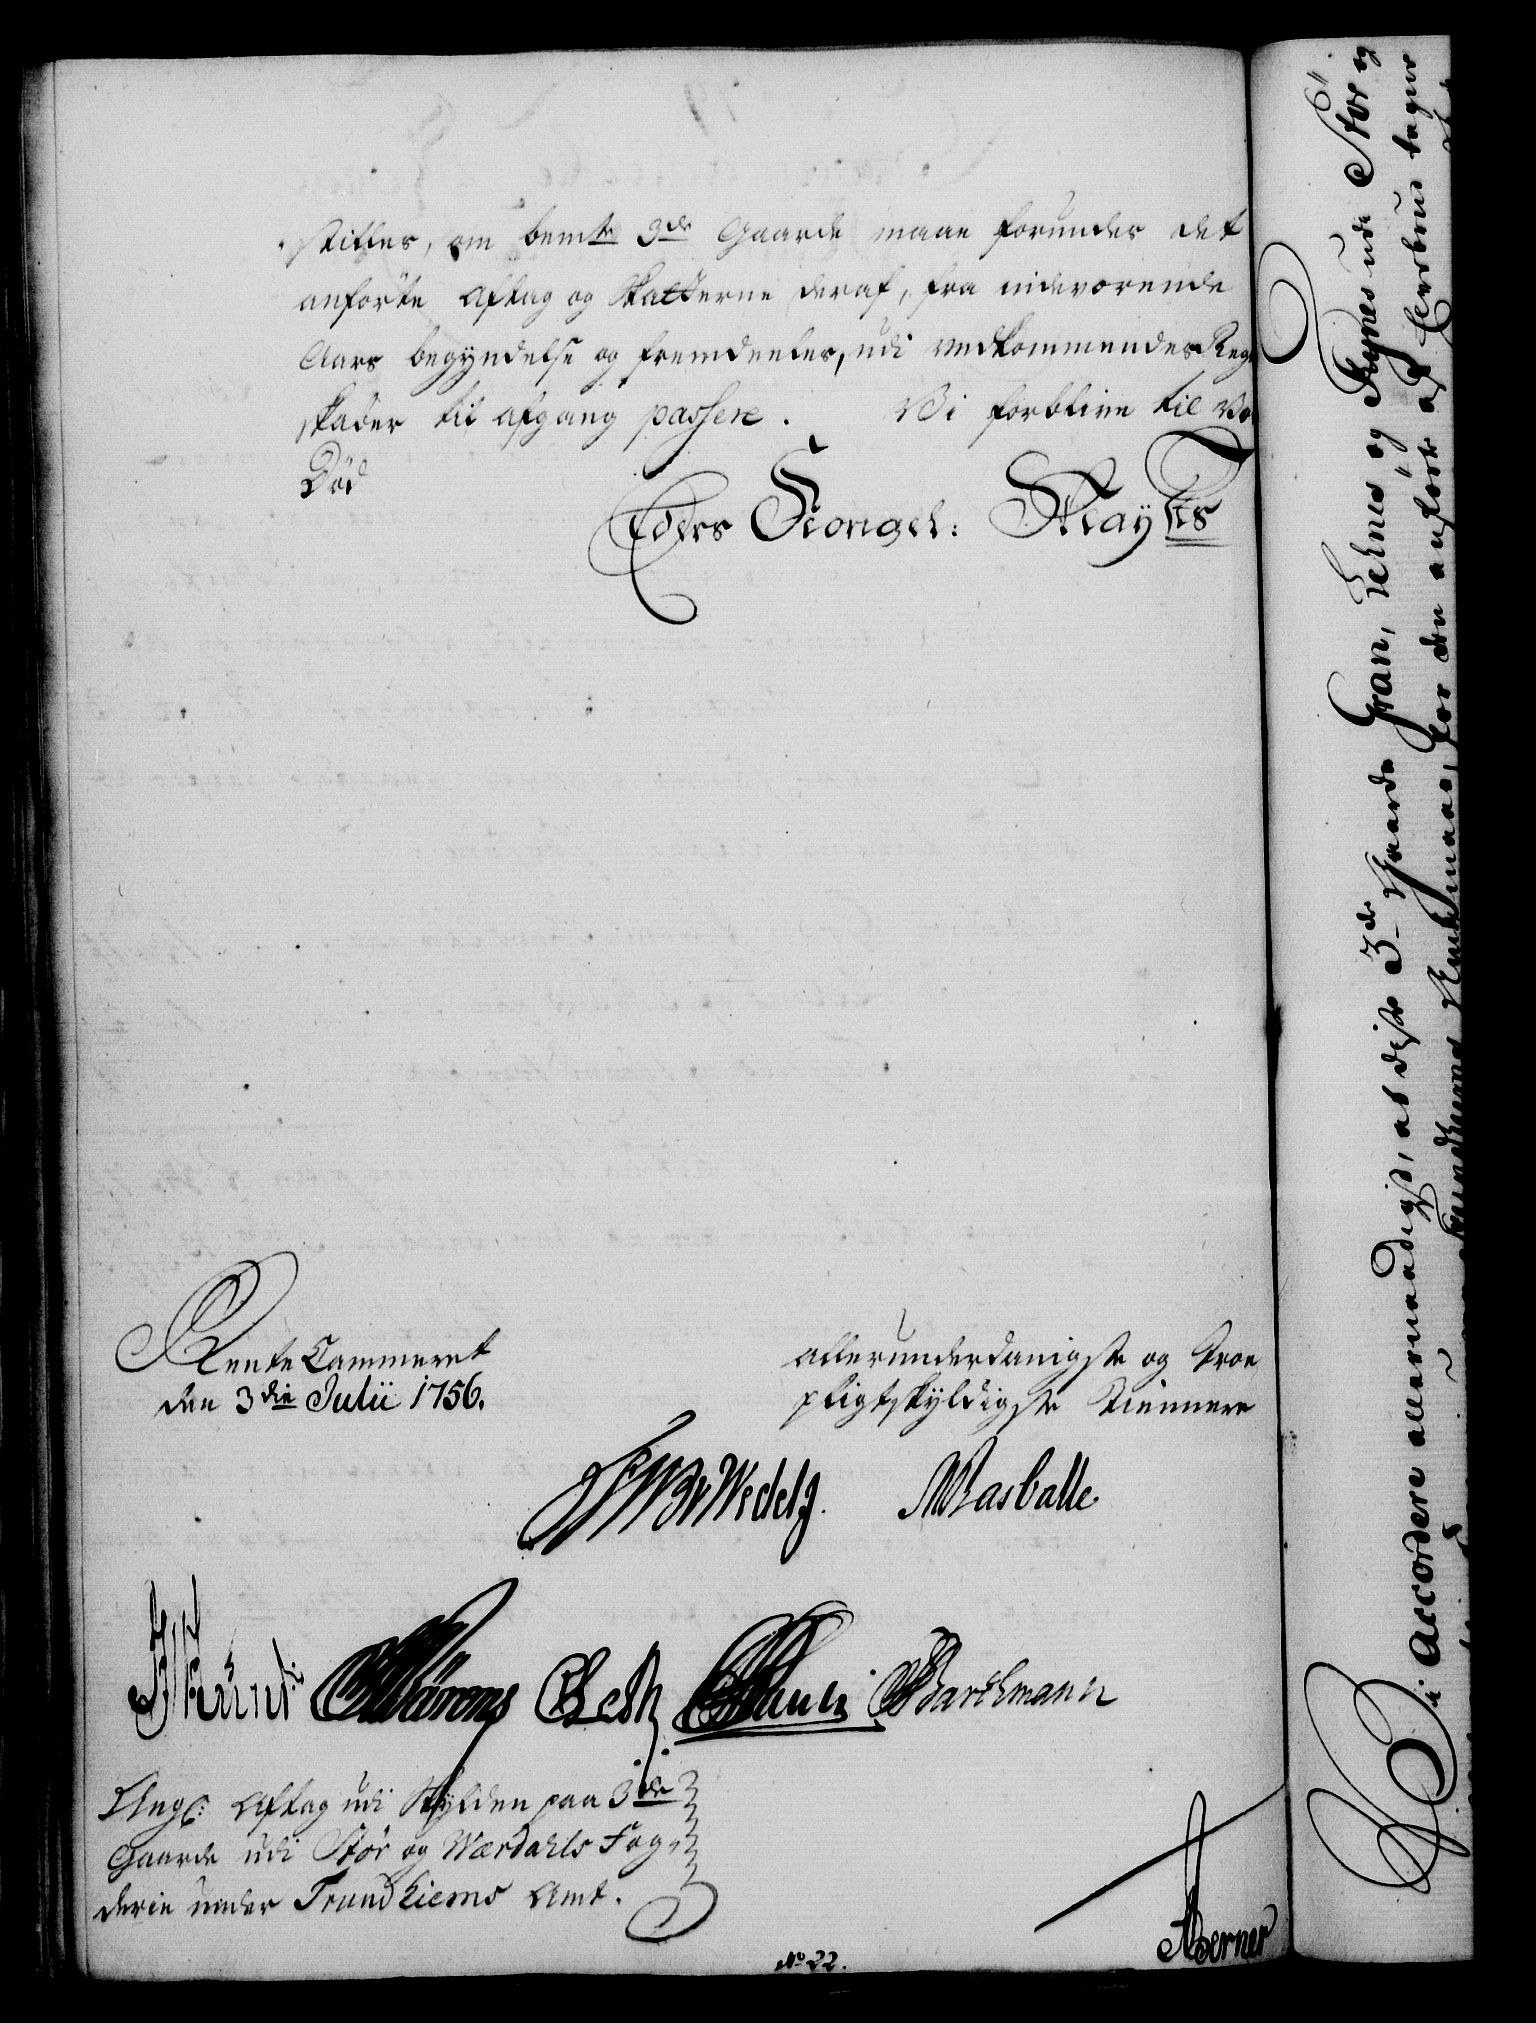 stilles, om bemte 3de Gaarde maae forundes det
anförte Aftag og Skatterne deraf, fra indeværende
Aars begyndelse og fremdeeles, udi vedkommendes Regn
skaber til afgang passere. Vi forblive til Vor
Död
Eders Kongel: Maysts
Rente Cammeret
den 3die Julii 1756.
allerunderdanigste og troe
pligtskyldigste Tienere
Wedelg. Rasballe
Beck Barchmann
Ang: Aftag udi Skylden paa 3de
Gaarde udi Stör og Værdahls Fog-
derie under Trundhiems Amt.
Berner
No 22.
Vi Accordere allernaadigst, at disse 3de Gaarde Gran, Lehnes og Fognes udi Stör og
for den anförte af tages